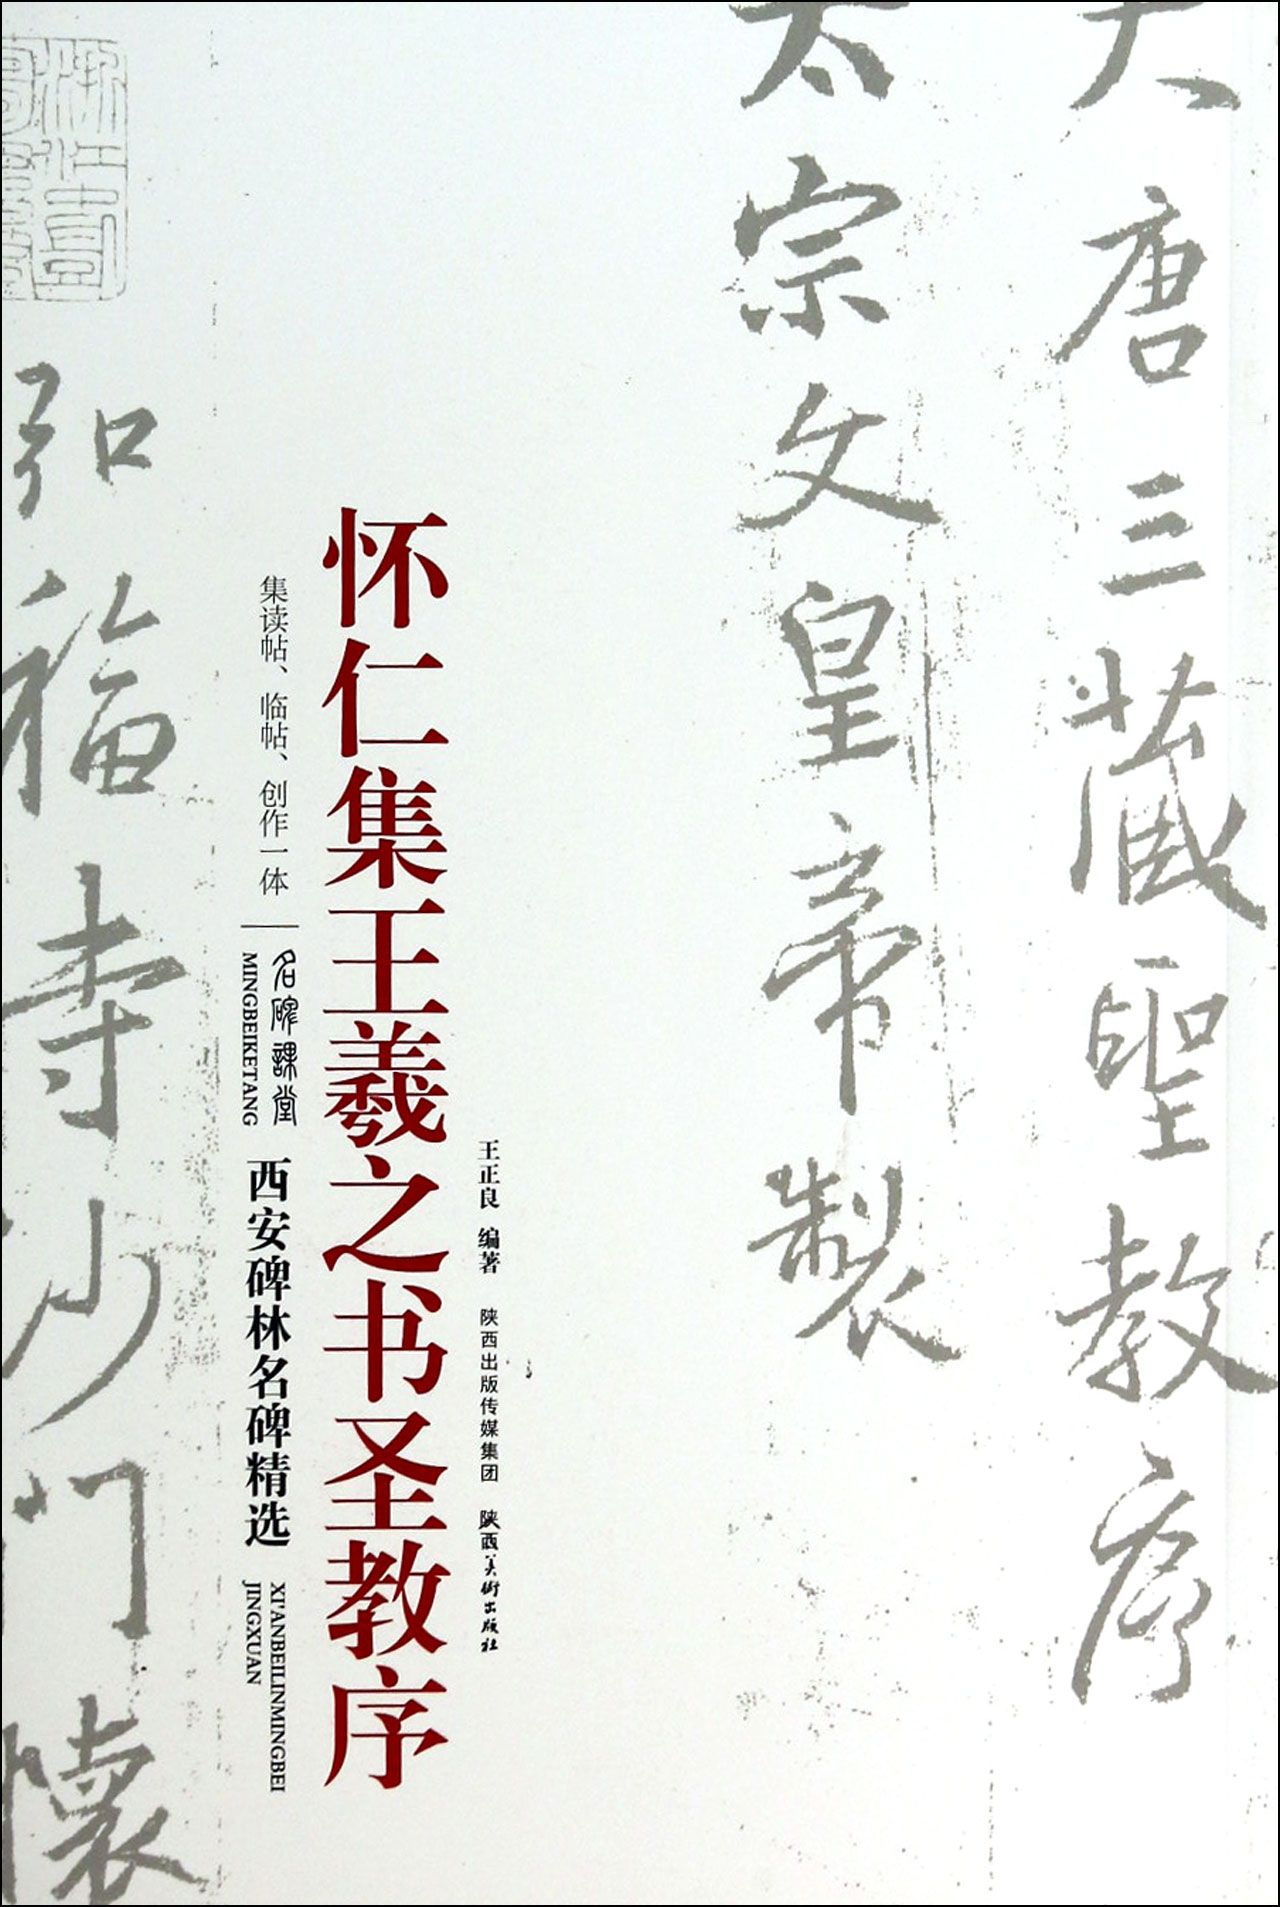 大唐三藏聖教序
太宗文皇帝製
弘福寺沙門懷
怀仁集王羲之书圣教序
集读帖、临帖、创作一体
名碑課堂
MINGBEIKETANG
西安碑林名碑精选
XI'ANBEILINMINGBEI
JINGXUAN
王正良 编著
陕西出版传媒集团 陕西美術出版社